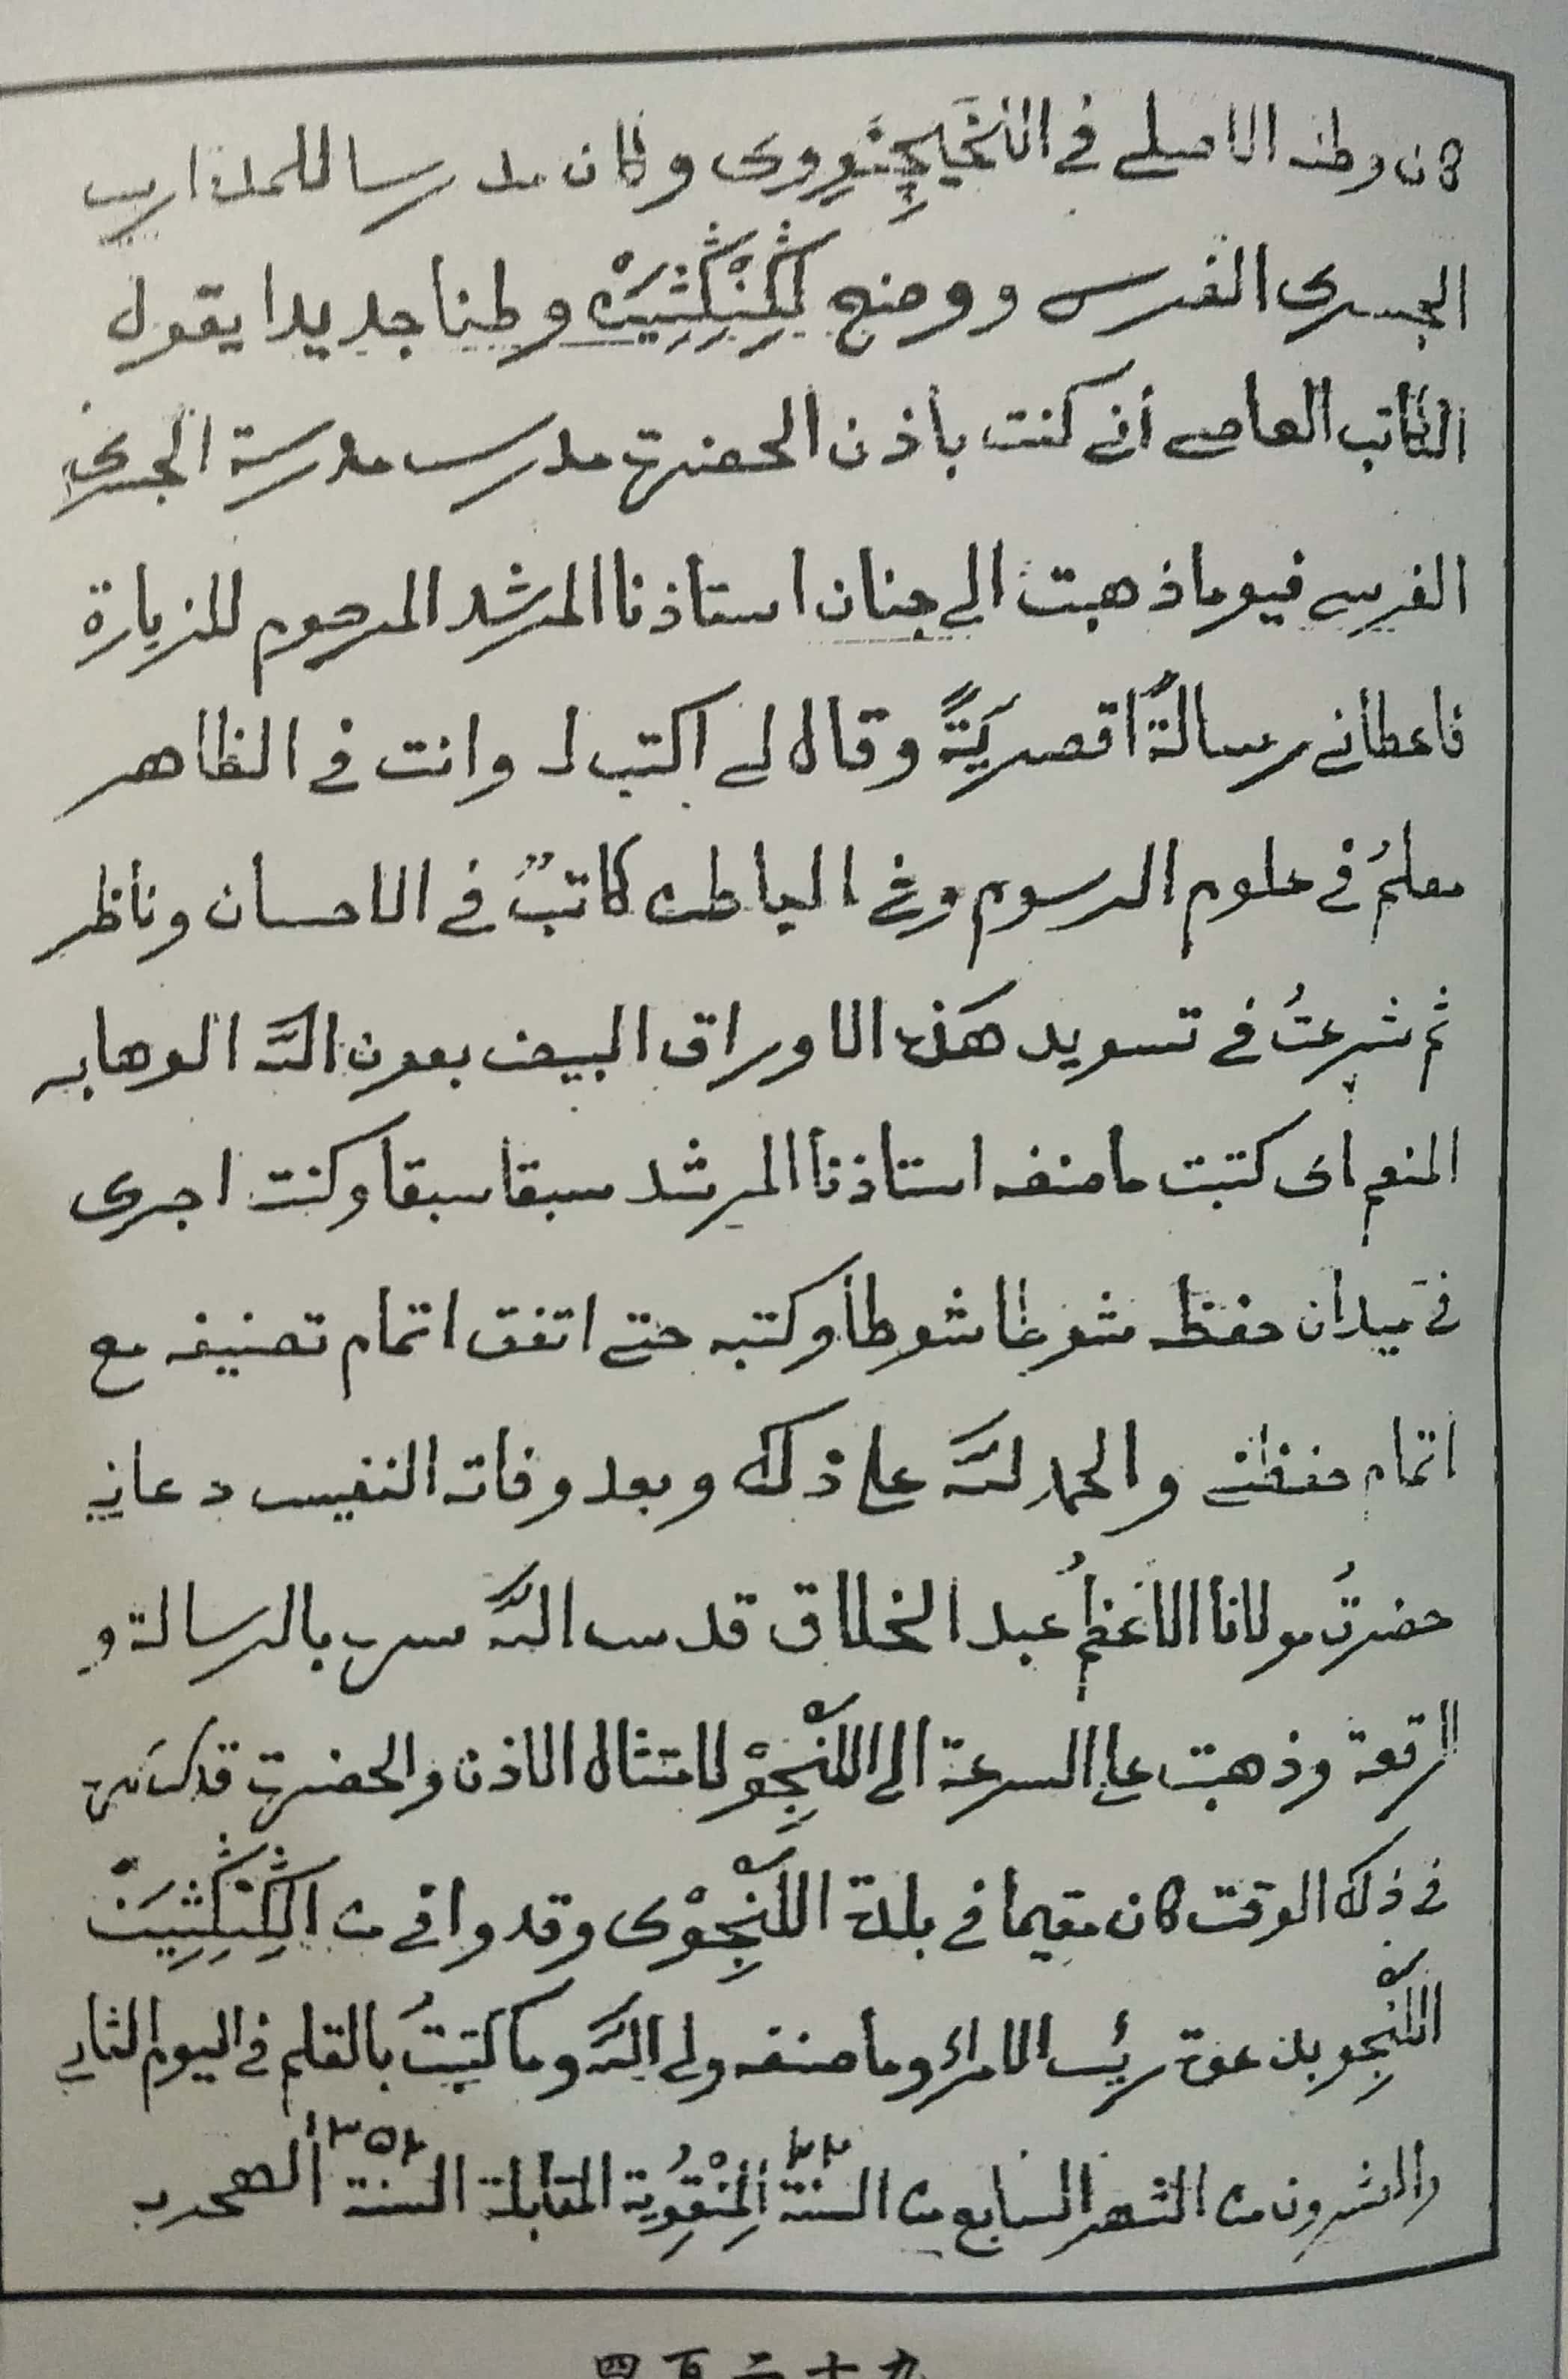 كان وطنه الاصلى فى وكان مدرسا للمدارس
الجسرى الغربى ووضع وطنا جديدا يقول
الكاتب العاصى أنى كنت بأذن الحضرة مدرس مدرسة الجسرى
الغربى فيوما ذهبت الى جنان استاذنا المرشد المرحوم للزيارة
فاعطانى رسالةً اقصريّةً وقال لى اكتب لـ وانت فى الظاهر
معلمُ فى علوم الرسوم وفى الباطن كاتبٌ فى الاحسان وناظر
ثم شرعتُ فى تسويد هذه الاوراق البيض بعون الله الوهاب
المنعم اى كتبت ما صنفه استاذنا المرشد سبقا سبقا وكنت اجرى
فى ميدان حفظه شوطا شوطا وكتبه حتى اتفق اتمام تصنيفه مع
اتمام حفظى والحمد لله على ذلك وبعد وفاته النفيس دعانى
حضرتُ مولانا الاعظمُ عبد الخلاق قدس الله سره بالرسالة و
الرقعة وذهبت على السرعة الى اللَّنْجِوْ لامتثال الاذن والحضرة قدس سره
فى ذلك الوقت كان مقيما فى بلدة اللَّنْجِوْى وقد وافى من
اللَّنْجِو بدعوة رئيس الامراء وما صنفه ولى الله وما كتبتُ بالقلم فى اليوم الثانى
والعشرون من الشهر السابع من السنة ٢٢ المِنْقُوِية المقابلة السنة ١٣٥٢ الهجرية
四百二十九